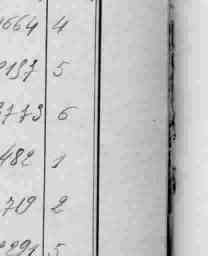 1664 4
2197 5
3773 6
482 1
719 2
2291 5